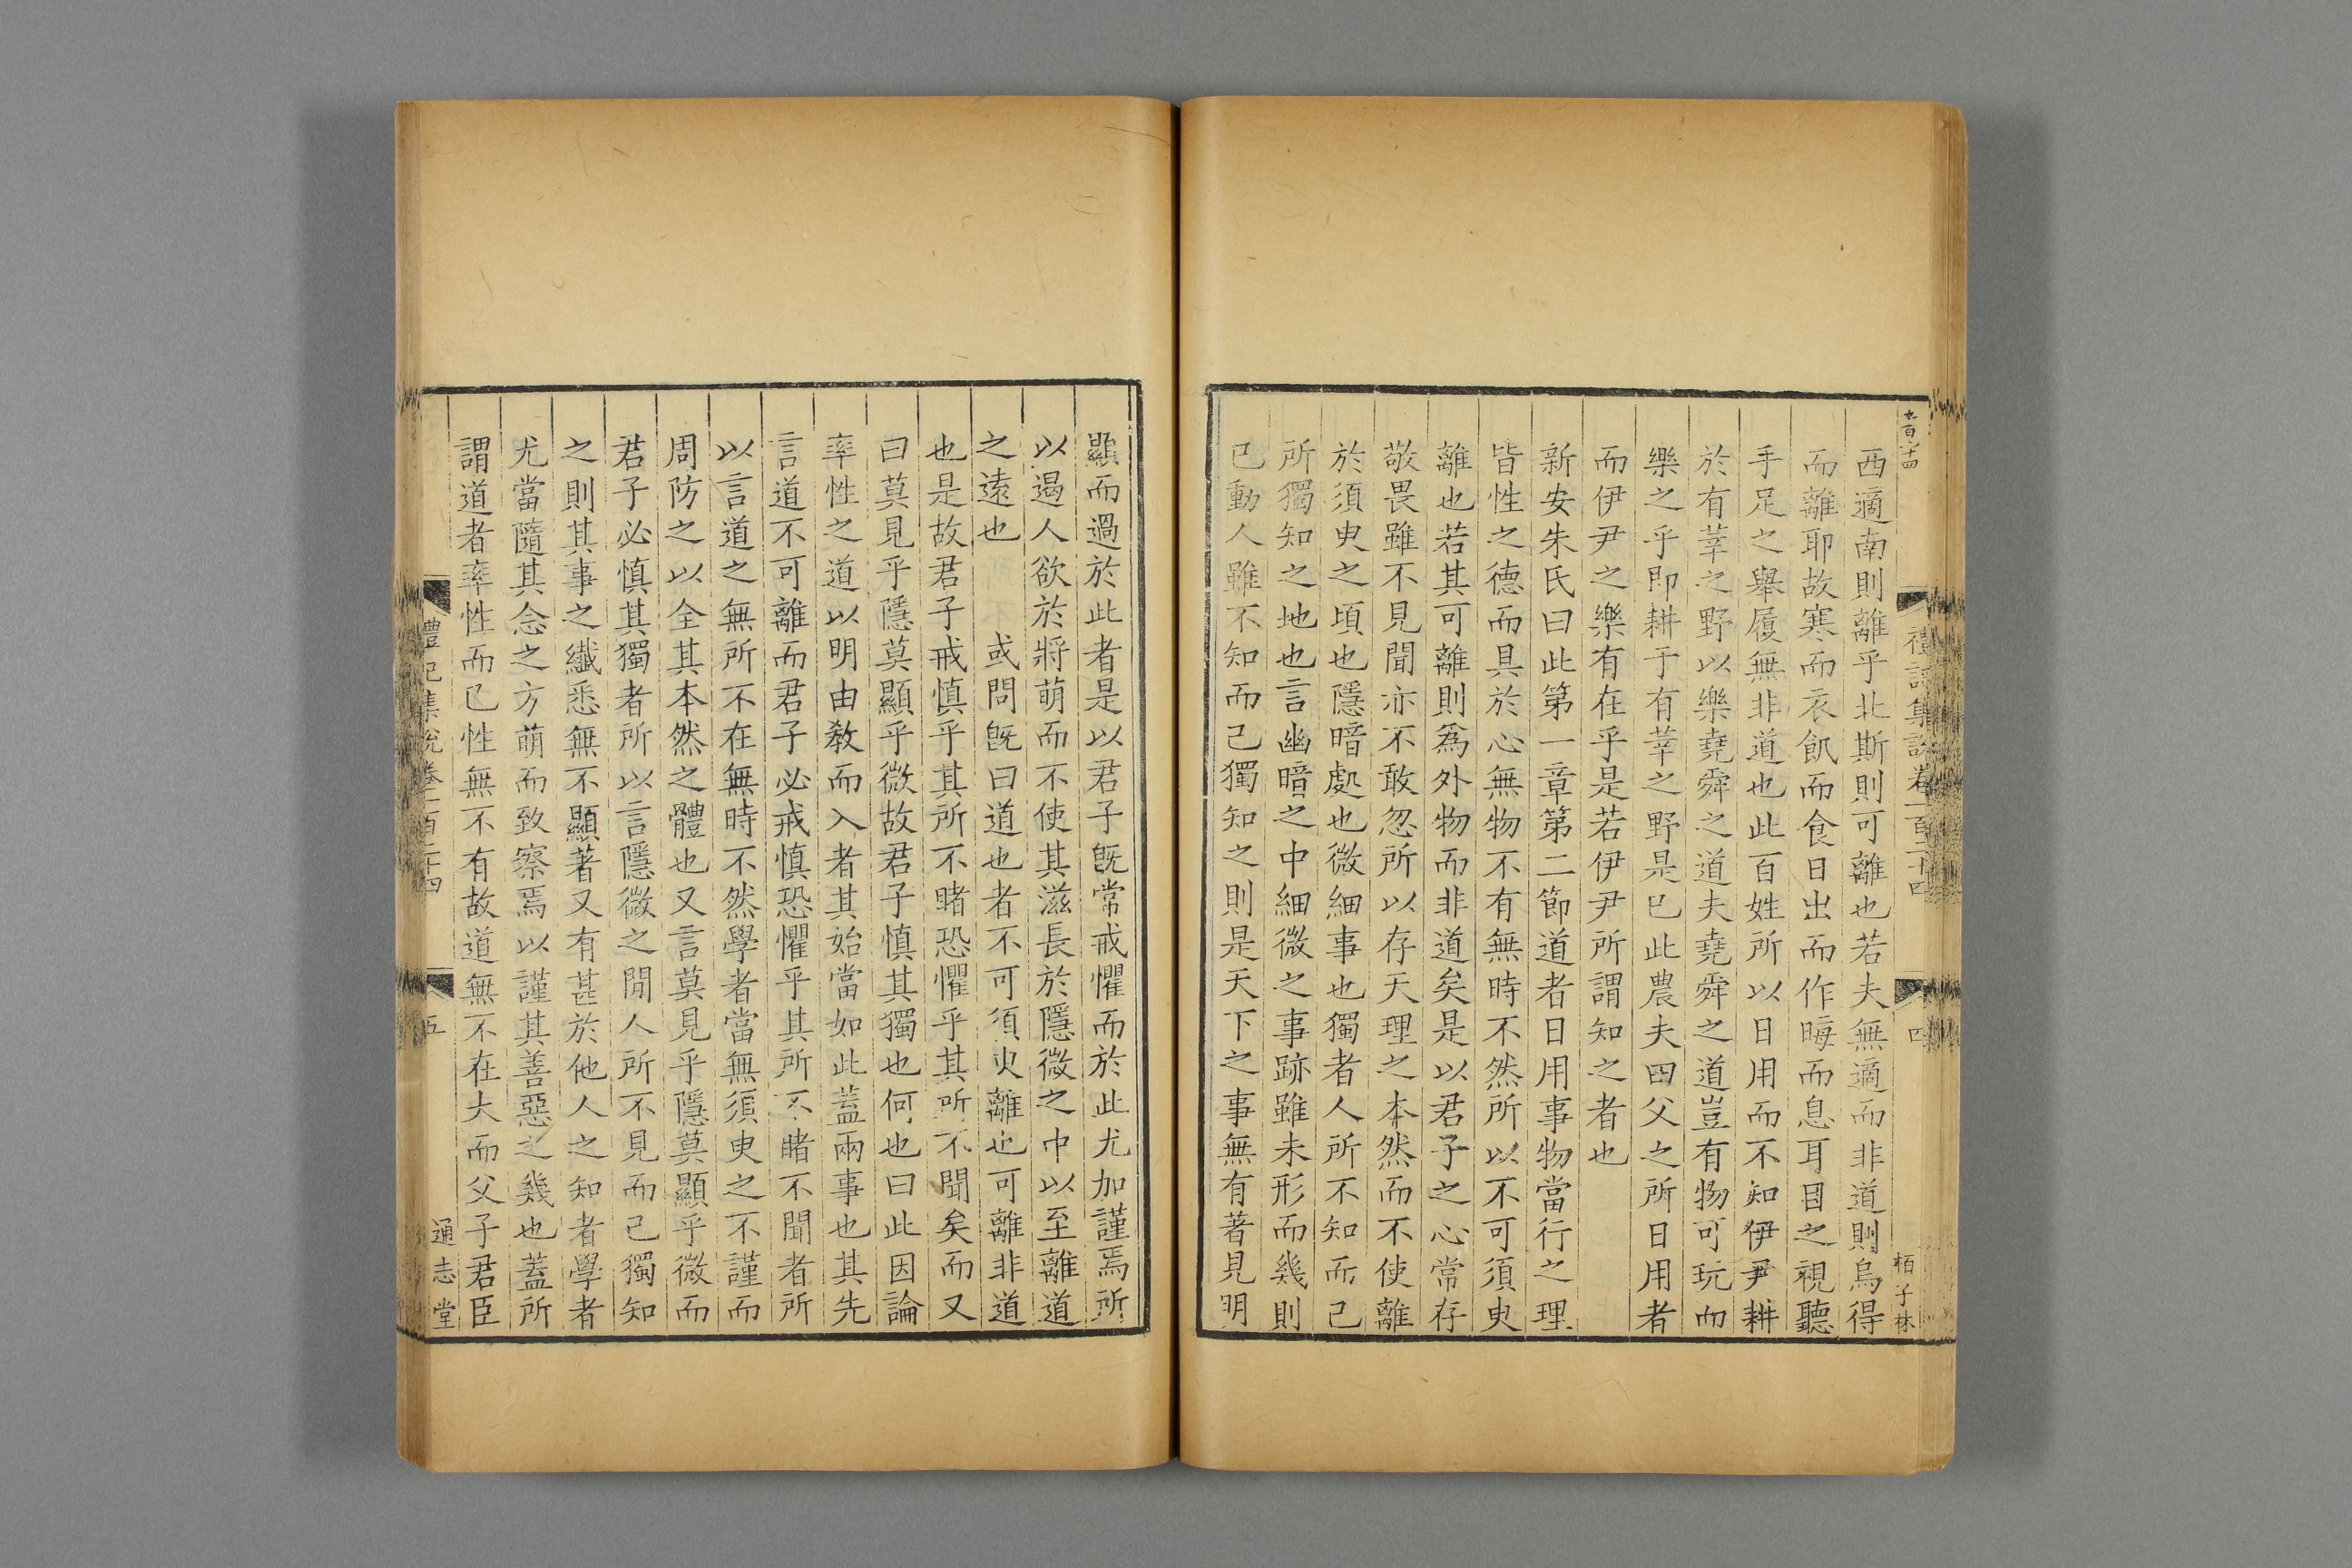 九百六十四
禮記集說卷一百二十四
四
栢子林
西適南則離乎北斯則可離也若夫無適而非道則烏得
而離耶故寒而衣飢而食日出而作晦而息耳目之視聽
手足之舉履無非道也此百姓所以日用而不知伊尹耕
於有莘之野以樂堯舜之道夫堯舜之道豈有物可玩而
樂之乎即耕于有莘之野是已此農夫田父之所日用者
而伊尹之樂有在乎是若伊尹所謂知之者也
新安朱氏曰此第一章第二節道者日用事物當行之理
皆性之德而具於心無物不有無時不然所以不可須臾
離也若其可離則為外物而非道矣是以君子之心常存
敬畏雖不見聞亦不敢忽所以存天理之本然而不使離
於須臾之頃也隱暗處也微細事也獨者人所不知而己
所獨知之地也言幽暗之中細微之事跡雖未形而幾則
已動人雖不知而己獨知之則是天下之事無有著見明
顯而過於此者是以君子旣常戒懼而於此尤加謹焉所
以遏人欲於將萌而不使其滋長於隱微之中以至離道
之遠也 或問旣曰道也者不可須臾離也可離非道
也是故君子戒慎乎其所不睹恐懼乎其所不聞矣而又
曰莫見乎隱莫顯乎微故君子慎其獨也何也曰此因論
率性之道以明由教而入者其始當如此蓋兩事也其先
言道不可離而君子必戒慎恐懼乎其所不睹不聞者所
以言道之無所不在無時不然學者當無須臾之不謹而
周防之以全其本然之體也又言莫見乎隱莫顯乎微而
君子必慎其獨者所以言隱微之閒人所不見而己獨知
之則其事之纖悉無不顯著又有甚於他人之知者學者
尤當隨其念之方萌而致察焉以謹其善惡之幾也蓋所
謂道者率性而已性無不有故道無不在大而父子君臣
禮記集說卷一百二十四
五
通志堂